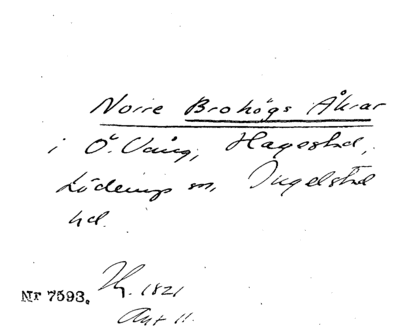 Norre Brohögs Åkrar
i Ö. Vång, Hagestad,
Löderups sn, Ingelstad
hd.
Nr 7593. 1821
Akt 11.